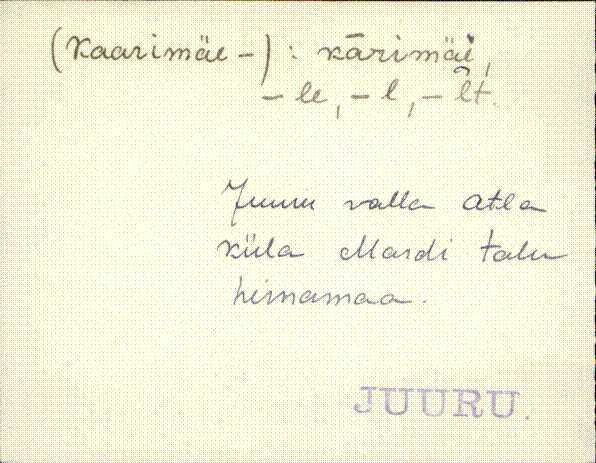 (Kaarimäe-): kārimäe,
-le, -l, -l̑t.
Juuru valla Atla
küla Mardi talu
heinamaa.
JUURU.